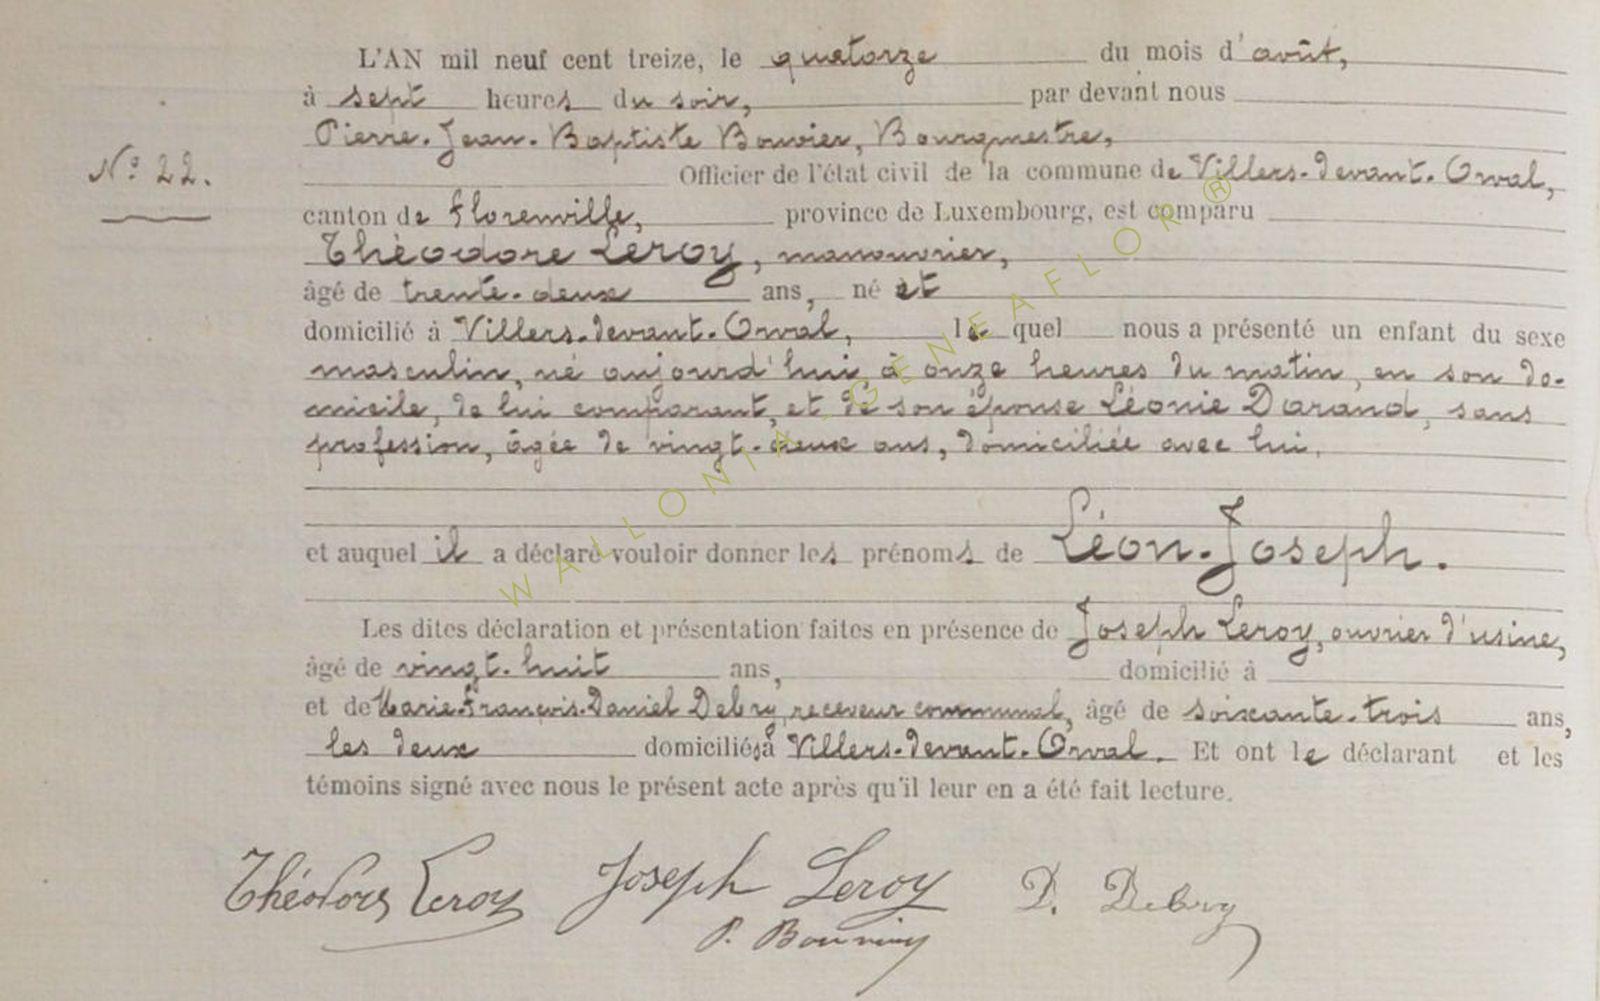 L'AN mil neuf cent treize, le quatorze du mois d'août,
à sept heures du soir, par devant nous
Pierre-Jean-Baptiste Bouvier, Bourgmestre,
N° 22.
Officier de l'état civil de la commune de Villers-devant-Orval,
canton de Florenville, province de Luxembourg, est comparu
Théodore Leroy, manouvrier,
âgé de trente-deux ans, né et
domicilié à Villers-devant-Orval, lequel nous a présenté un enfant du sexe
masculin, né aujourd'hui à onze heures du matin, en son do-
micile, de lui comparant, et de son épouse Léonie Darand, sans
profession, âgée de vingt-deux ans, domiciliée avec lui,
et auquel il a déclaré vouloir donner les prénoms de Léon-Joseph.
Les dites déclaration et présentation faites en présence de Joseph Leroy, ouvrier d'usine,
âgé de vingt-huit ans, domicilié à
et de Marie-François-Daniel Debry, receveur communal, âgé de soixante-trois ans,
les deux domiciliés à Villers-devant-Orval. Et ont le déclarant et les
témoins signé avec nous le présent acte après qu'il leur en a été fait lecture.
Théodore Leroy Joseph Leroy D. Debry
P. Bouvier
WALLONIA-GENEAFLOR®